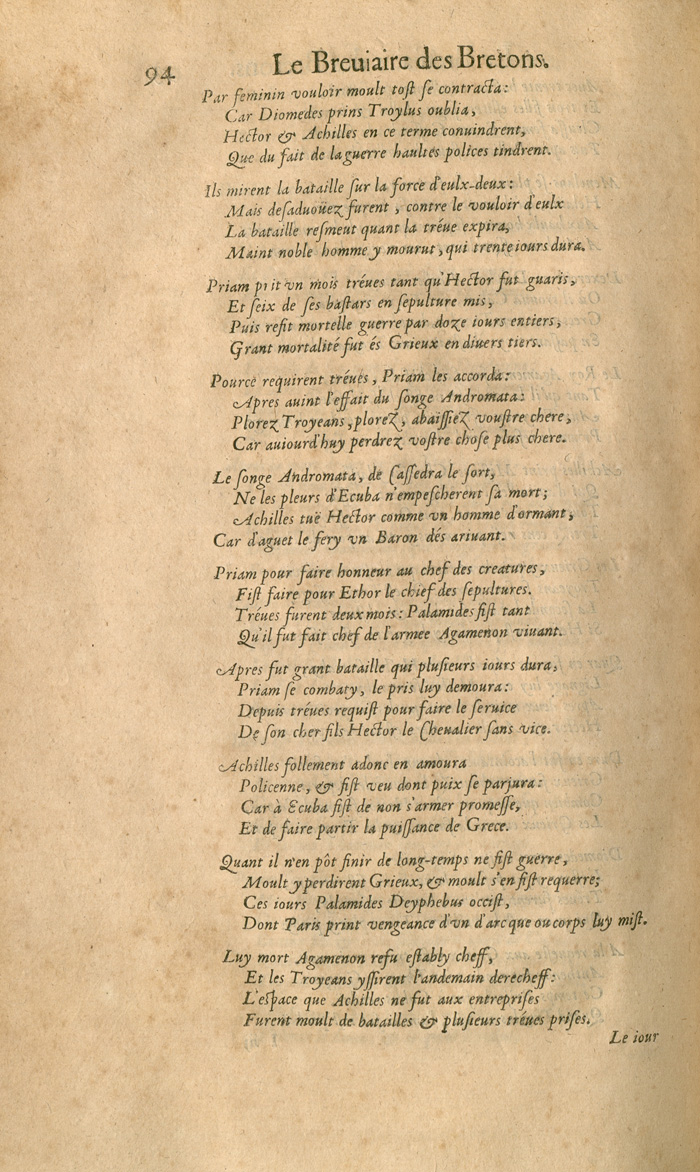 94 Le Breuiaire des Bretons.
Par feminin vouloir moult tost se contracta:
Car Diomedes prins Troylus oublia,
Hector & Achilles en ce terme conuindrent,
Que du fait de la guerre haultes polices tindrent.
Ils mirent la bataille sur la force d'eulx-deux:
Mais desaduoüez furent, contre le vouloir d'eulx
La bataille resmeut quant la tréue expira,
Maint noble homme y mourut, qui trente iours dura.
Priam prit vn mois tréues tant qu'Hector fut guaris,
Et seix de ses bastars en sepulture mis,
Puis refit mortelle guerre par doze iours entiers,
Grant mortalité fut és Grieux en diuers tiers.
Pource requirent tréues, Priam les accorda:
Apres auint l'effait du songe Andromata:
Plorez Troyeans, plorez, abaissiez voustre chere,
Car auiourd'huy perdrez vostre chose plus chere.
Le songe Andromata, de Cassedra le sort,
Ne les pleurs d'Ecuba n'empescherent sa mort;
Achilles tuë Hector comme vn homme d'ormant,
Car d'aguet le fery vn Baron dés ariuant.
Priam pour faire honneur au chef des creatures,
Fist faire pour Ethor le chief des sepultures.
Tréues furent deux mois: Palamides fist tant
Qu'il fut fait chef de l'armee Agamenon viuant.
Apres fut grant bataille qui plusieurs iours dura,
Priam se combaty, le pris luy demoura:
Depuis tréues requist pour faire le seruice
De son cher fils Hector le Cheualier sans vice.
Achilles follement adonc en amoura
Policenne, & fist veu dont puix se parjura:
Car à Ecuba fist de non s'armer promesse,
Et de faire partir la puissance de Grece.
Quant il n'en pôt finir de long-temps ne fist guerre,
Moult y perdirent Grieux, & moult s'en fist requerre;
Ces iours Palamides Deyphebus occist,
Dont Paris print vengeance d'vn d'arc que ou corps luy mist.
Luy mort Agamenon refu estably cheff,
Et les Troyeans yssirent l'andemain derecheff:
L'espace que Achilles ne fut aux entreprises
Furent moult de batailles & plusieurs tréues prises.
Le iour